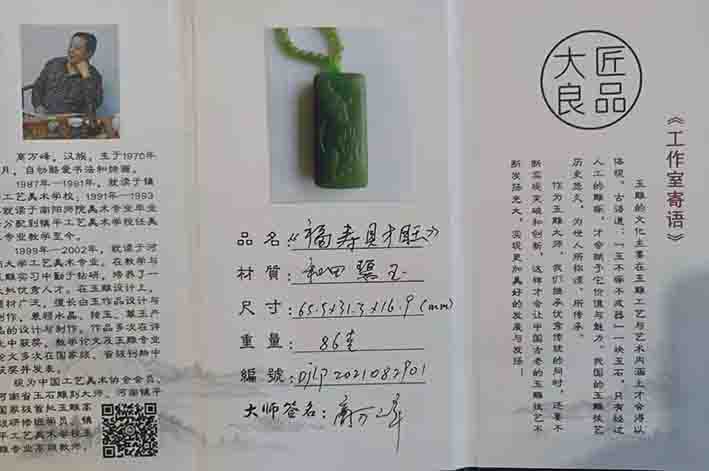 高万峰，汉族，生于1970年
月，自幼酷爱书法和绘画。
1987年—1991年，就读于镇
工艺美术学校，1991年—1993
就读于南阳师院美术专业毕业
分配到镇平工艺美术学校任美
专业教学至今。
1999年—2002年，就读于河
大学工艺美术专业。在教学与
玉雕实习中勤于钻研，培养了一
大批优秀人才。在玉雕设计上，
题材广泛，擅长白玉作品设计与
制作，兼顾水晶、独玉、翠玉产
品的设计与制作。作品多次在评
大中获奖。教学论文及玉雕专业
论文多次在国家级、省级刊物中
获奖并发表。
现为中国工艺美术协会会员、
河南省玉石雕刻大师、河南镇平
国家级首批玉雕高
级研修班学员、镇
平工艺美术学校玉
雕专业高级教师。
品名《福寿财旺》
材質：和田碧玉
尺寸：65.5×31.3×16.9(mm)
重量：86克
編號：DJLP2021082901
大师签名：高万峰
大匠
良品
《工作室寄语》
玉雕的文化主要在玉雕工艺与艺术内涵上才会得以
体现。古语道：“玉不琢不成器”一块玉石，只有经过
人工的雕琢，才会赋予它价值与魅力。我国的玉雕技艺
历史悠久，为世人所称颂、所传承。
作为玉雕大师，我们继承优秀传统的同时，还要不
断实现突破和创新，这样才会让中国古老的玉雕技艺不
断发扬光大，实现更加美好的发展与发扬！